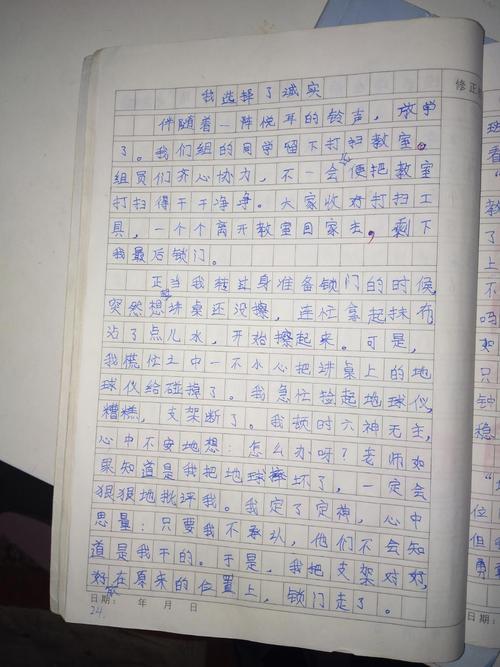 我选择了诚实
伴随着一阵悦耳的铃声，放学
了。我们组的同学留下打扫教室。
组员们齐心协力，不一会儿便把教室
打扫得干干净净。大家收好打扫工
具，一个个离开教室回家去，剩下
我最后锁门。
正当我转过身准备锁门的时候，
突然想起讲桌还没擦，连忙拿起抹布
沾了点儿水，开始擦起来。可是，
我慌忙之中一不小心把讲桌上的地
球仪给碰掉了。我急忙捡起地球仪，
糟糕，支架断了。我顿时六神无主，
心中不安地想：怎么办呀？老师如
果知道是我把地球摔坏了，一定会
狠狠地批评我。我定了定神，心中
思量：只要我不承认，他们不会知
道是我干的。于是，我把支架对好，
放在原来的位置上，锁门走了。
日期： 年 月 日
24.
修正